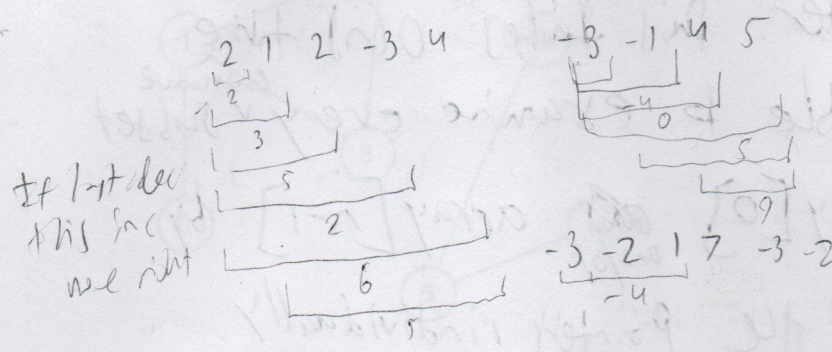 2 1 2 -3 4
2
3
5
2
6
5
If last dec
this inc
move right
-3 -1 4 5
-4
0
5
9
-3 -2 1 7 -3 -2
-4